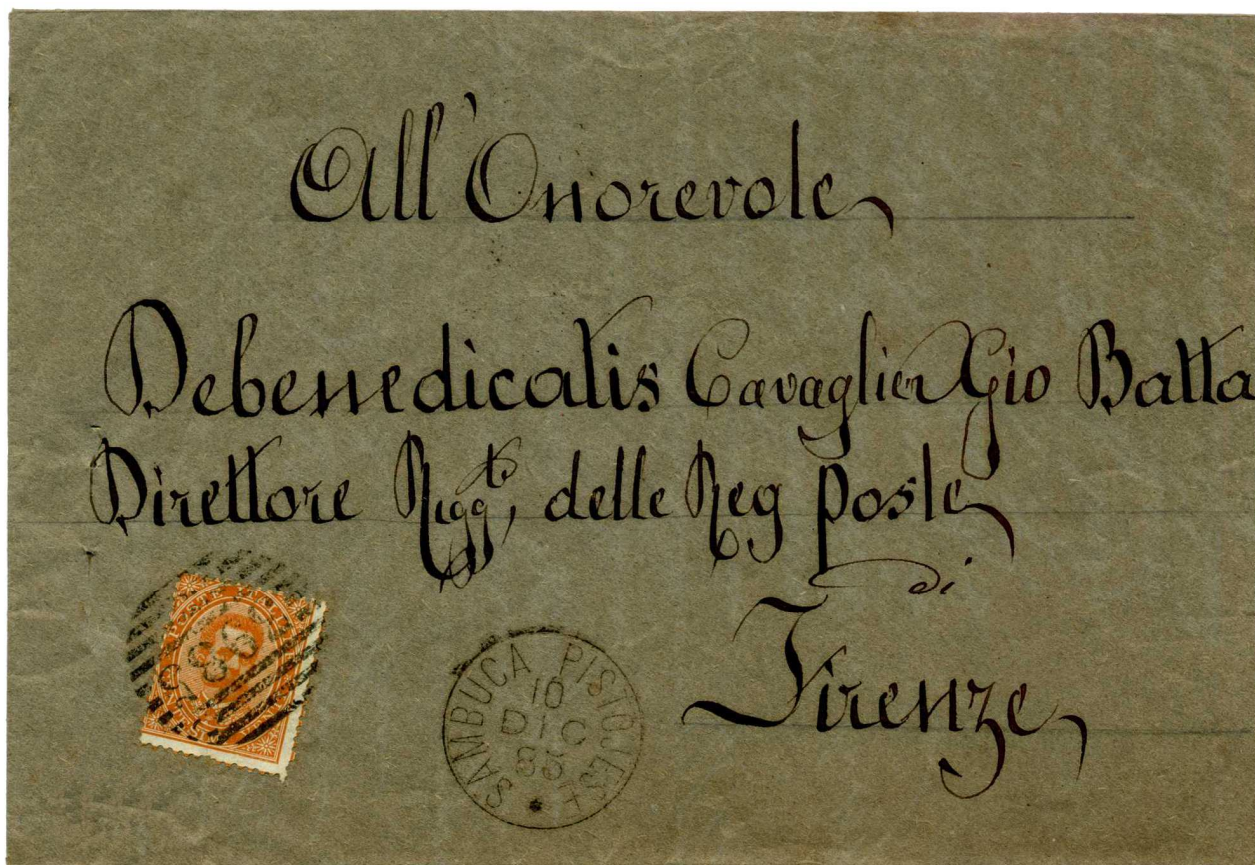 All'Onorevole
Debenedicatis Cavaglier Gio Batta
Direttore delle Reg poste
di
Firenze
SAMBUCA PISTOJESE
10
DIC
85
POSTE ITALIANE